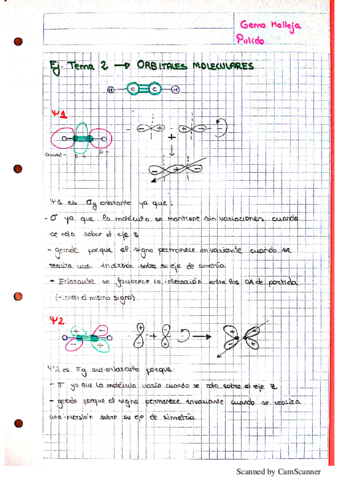 Gema Molleja
Pulido
Ej. Tema 2 → ORBITALES MOLECULARES
H C C H
Ψ1
Ψ1 es σg enlazante ya que:
- σ ya que la molécula se mantiene sin variaciones cuando
se rota sobre el eje z
- gerade porque el signo permanece invariante cuando se
realiza una inversión sobre su eje de simetría
- Enlazante se favorece la interacción entre los OA de partida
(tienen el mismo signo)
Ψ2
Ψ2 es πg antienlazante porque
- π ya que la molécula varía cuando se rota sobre el eje z
- gerade porque el signo permanece invariante cuando se realiza
una inversión sobre su eje de simetría.
Scanned by CamScanner